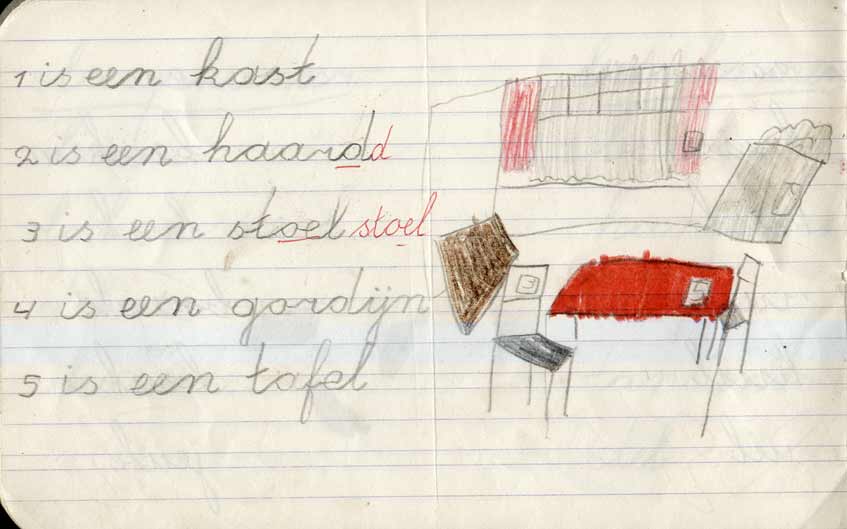 1 is een kast
2 is een haard d
3 is een stoel stoel
4 is een gordijn
5 is een tafel
3
5